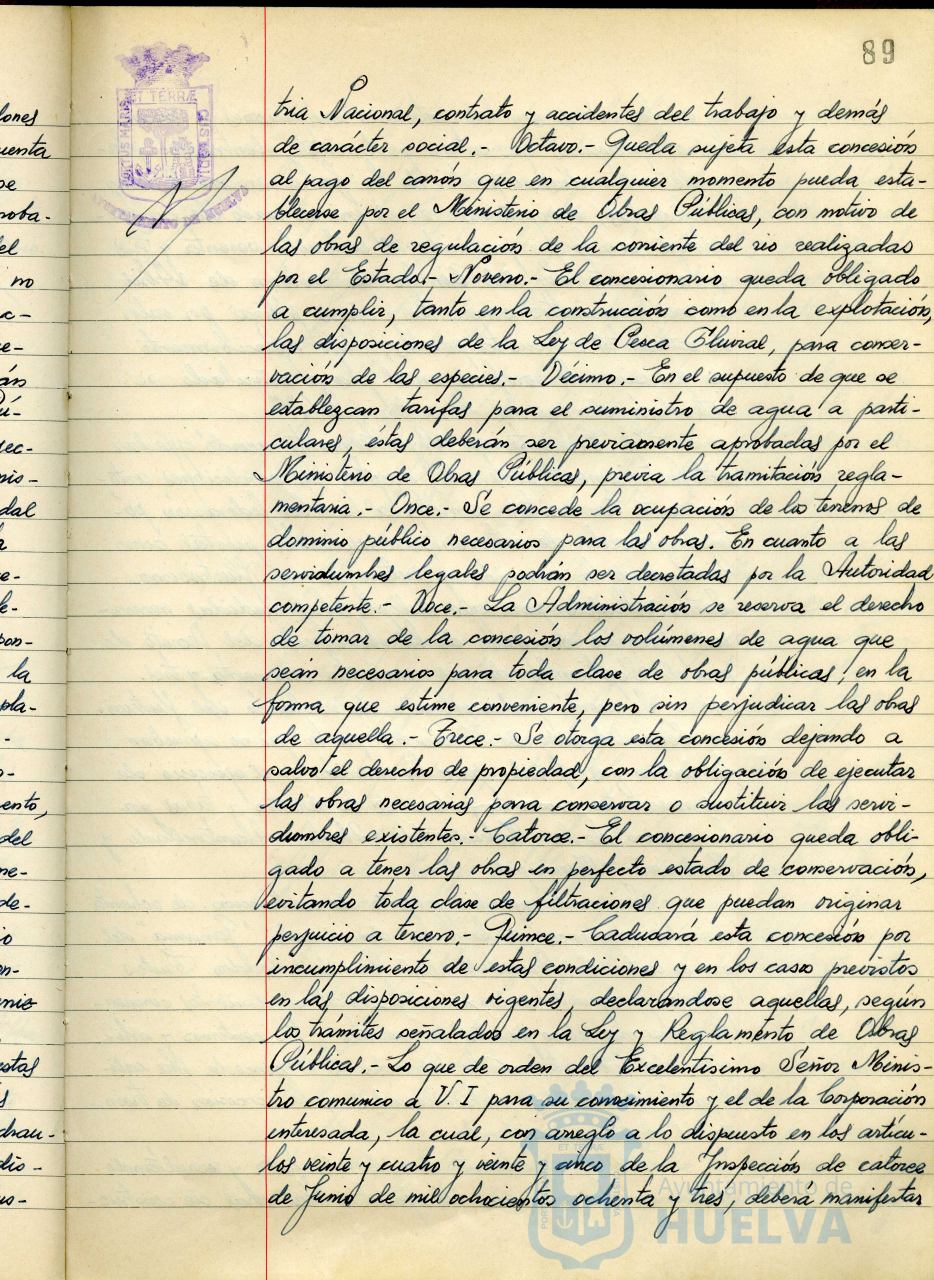 89
tria Nacional, contrato y accidentes del trabajo y demás
de carácter social.- Octavo.- Queda sujeta esta concesión
al pago del canón que en cualquier momento pueda esta-
blecerse por el Ministerio de Obras Públicas, con motivo de
las obras de regulación de la corriente del rio realizadas
por el Estado.- Noveno.- El concesionario queda obligado
a cumplir, tanto en la construcción como en la explotación,
las disposiciones de la Ley de Pesca Fluvial, para conser-
vación de las especies.- Décimo.- En el supuesto de que se
establezcan tarifas para el suministro de agua a parti-
culares, éstas deberán ser previamente aprobadas por el
Ministerio de Obras Públicas, previa la tramitación regla-
mentaria.- Once.- Se concede la ocupación de los terrenos de
dominio público necesarios para las obras. En cuanto a las
servidumbres legales podrán ser decretadas por la Autoridad
competente.- Doce.- La Administración se reserva el derecho
de tomar de la concesión los volúmenes de agua que
sean necesarios para toda clase de obras públicas, en la
forma que estime conveniente, pero sin perjudicar las obras
de aquella.- Trece.- Se otorga esta concesión dejando a
salvo el derecho de propiedad, con la obligación de ejecutar
las obras necesarias para conservar o sustituir las servi-
dumbres existentes.- Catorce.- El concesionario queda obli-
gado a tener las obras en perfecto estado de conservación,
evitando toda clase de filtraciones que puedan originar
perjuicio a tercero.- Quince.- Caducará esta concesión por
incumplimiento de estas condiciones y en los casos previstos
en las disposiciones vigentes, declarandose aquellas, según
los trámites señalados en la Ley y Reglamento de Obras
Públicas.- Lo que de orden del Excelentísimo Señor Minis-
tro comunico a V. I para su conocimiento y el de la Corporación
interesada, la cual, con arreglo a lo dispuesto en los artícu-
los veinte y cuatro y veinte y cinco de la Inspección de catorce
de Junio de mil ochocientos ochenta y tres, deberá manifestar
Ayuntamiento de
HUELVA